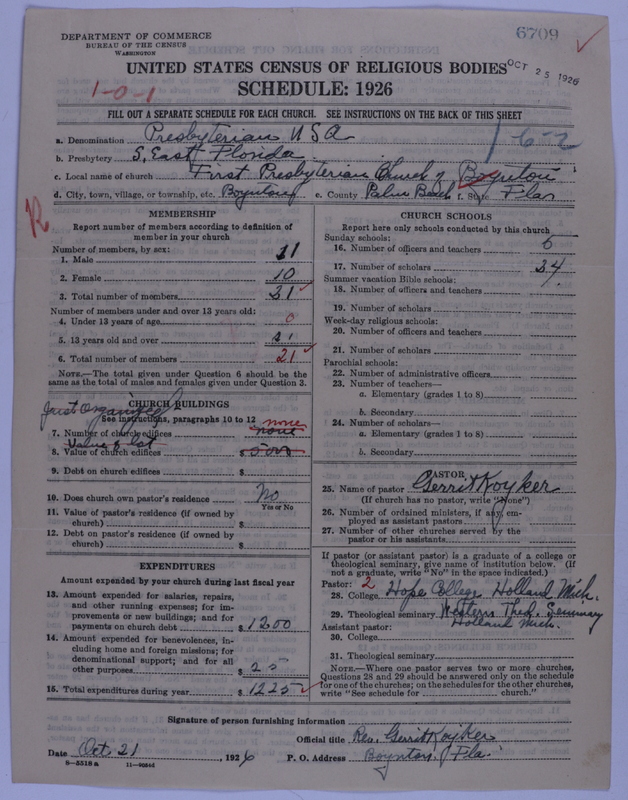 DEPARTMENT OF COMMERCE
BUREAU OF THE CENSUS
WASHINGTON
6709
UNITED STATES CENSUS OF RELIGIOUS BODIES
OCT 25 1926
SCHEDULE: 1926
1-0-1
FILL OUT A SEPARATE SCHEDULE FOR EACH CHURCH. SEE INSTRUCTIONS ON THE BACK OF THIS SHEET
a. Denomination Presbyterian U S A
1 6-2
b. Presbytery S. East Florida
c. Local name of church First Presbyterian Church of Boynton
d. City, town, village, or township, etc. Boynton e. County Palm Beach f. State Fla
MEMBERSHIP
Report number of members according to definition of
member in your church
Number of members, by sex:
1. Male 11
2. Female 10
3. Total number of members 21
Number of members under and over 13 years old:
4. Under 13 years of age 0
5. 13 years old and over 21
6. Total number of members 21
NOTE.—The total given under Question 6 should be
same as the total of males and females given under Question 3.
CHURCH BUILDINGS
Just Organized
See instructions, paragraphs 10 to 12
none
7. Number of church edifices none
Value of lot
8. Value of church edifices $
9. Debt on church edifices $
10. Does church own pastor's residence No
Yes or No
11. Value of pastor's residence (if owned by
church) $
12. Debt on pastor's residence (if owned by
church) $
EXPENDITURES
Amount expended by your church during last fiscal year
13. Amount expended for salaries, repairs,
and other running expenses; for im-
provements or new buildings; and for
payments on church debt $ 1200
14. Amount expended for benevolences, in-
cluding home and foreign missions; for
denominational support; and for all
other purposes $ 25
15. Total expenditures during year $ 1225
CHURCH SCHOOLS
Report here only schools conducted by this church
Sunday schools:
16. Number of officers and teachers 6
17. Number of scholars 34
Summer vacation Bible schools:
18. Number of officers and teachers
19. Number of scholars
Week-day religious schools:
20. Number of officers and teachers
21. Number of scholars
Parochial schools:
22. Number of administrative officers
23. Number of teachers—
a. Elementary (grades 1 to 8)
b. Secondary
24. Number of scholars—
a. Elementary (grades 1 to 8)
b. Secondary
PASTOR
25. Name of pastor Gerrit Koyker
(If church has no pastor, write "None")
26. Number of ordained ministers, if any, em-
ployed as assistant pastors
27. Number of other churches served by the
pastor or his assistants
If pastor (or assistant pastor) is a graduate of a college or
theological seminary, give name of institution below. (If
not a graduate, write "No" in the space indicated.)
Pastor: 2
28. College Hope College Holland Mich.
29. Theological seminary Western Theo. Seminary
Assistant pastor: Holland Mich.
30. College
31. Theological seminary
NOTE.—Where one pastor serves two or more churches,
Questions 28 and 29 should be answered only on the schedule
for one of the churches; on the schedules for the other churches,
write "See schedule for church."
Signature of person furnishing information
Official title Rev. Gerrit Koyker
Date Oct 21 1926 P. O. Address Boynton, Fla.
8—5518 a